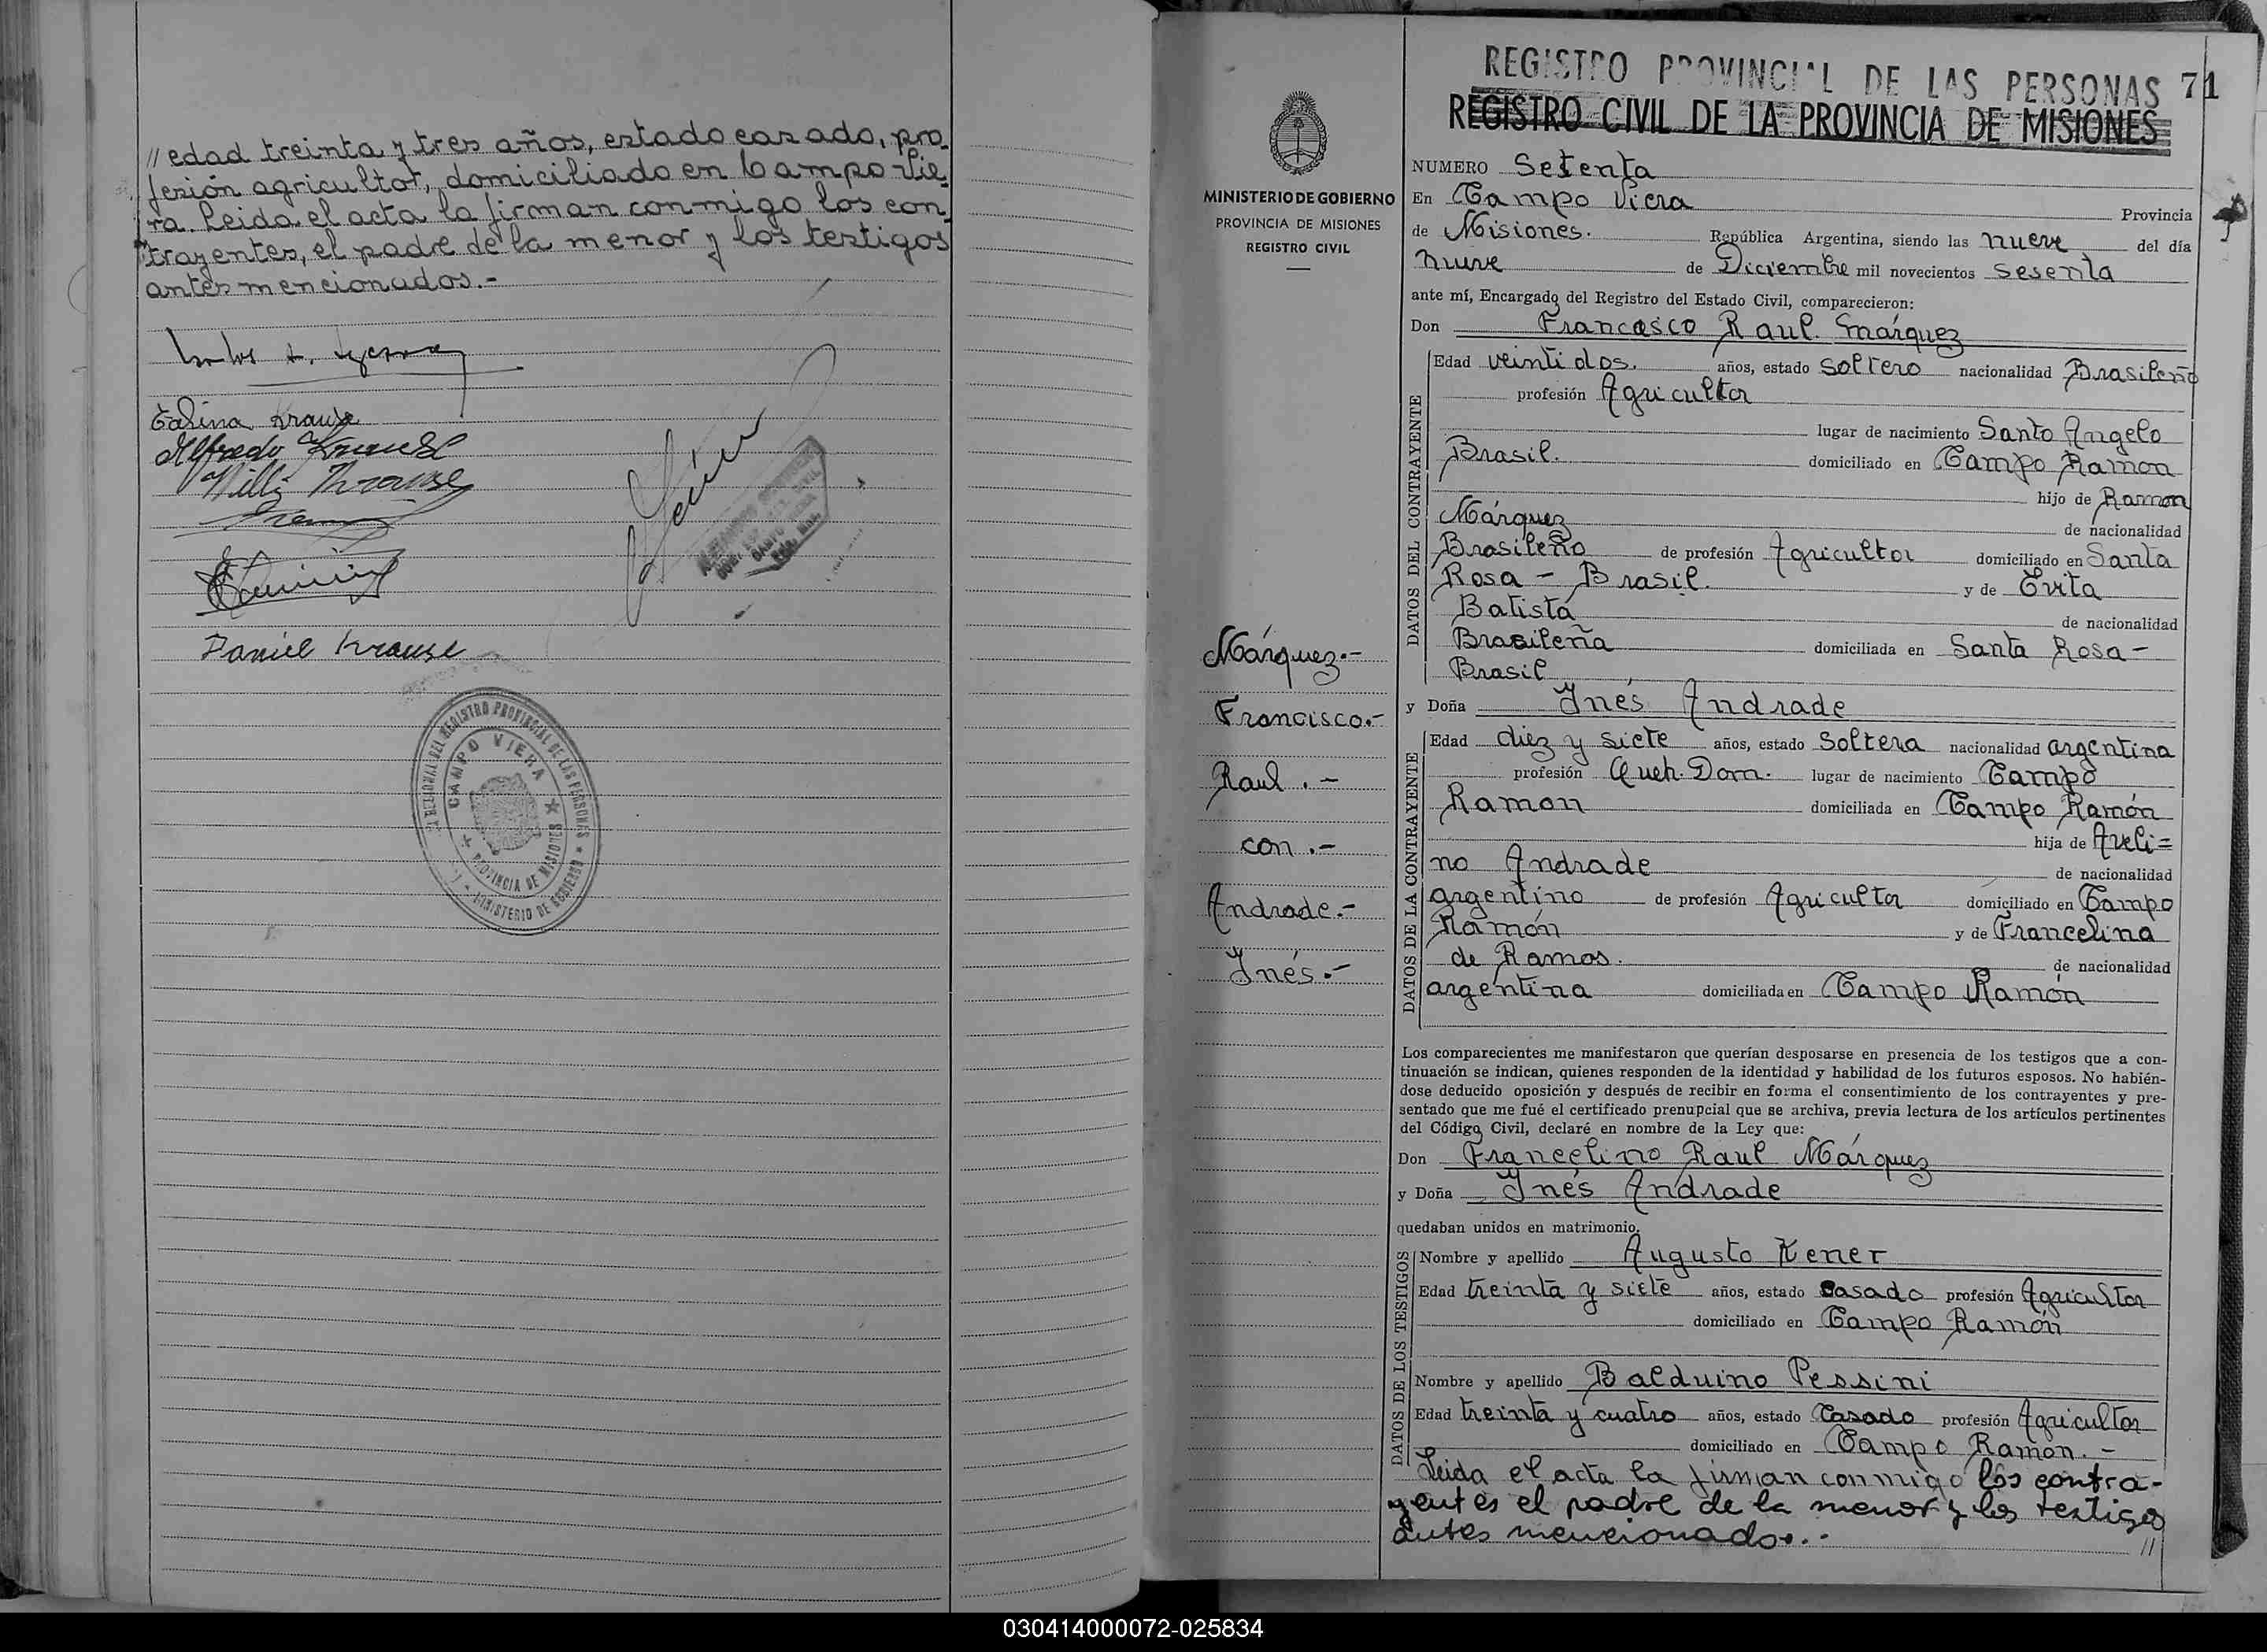 // edad treinta y tres años, estado casado, pro-
fesión agricultor, domiciliado en Campo Vie-
ra. Leida el acta la firman conmigo los con-
trayentes, el padre de la menor y los testigos
antes mencionados.-
Edina Krause
Alfredo Krause
Willi Krause
Daniel Krause
REGISTRO PROVINCIAL DE LAS PERSONAS
CAMPO VIERA
PROVINCIA DE MISIONES
MINISTERIO DE GOBIERNO
MINISTERIO DE GOBIERNO
PROVINCIA DE MISIONES
REGISTRO CIVIL
Márquez.-
Francisco.-
Raul.-
con.-
Andrade.-
Inés.-
REGISTRO PROVINCIAL DE LAS PERSONAS 71
REGISTRO CIVIL DE LA PROVINCIA DE MISIONES
NUMERO Setenta
En Campo Viera Provincia
de Misiones. República Argentina, siendo las nueve del día
nueve de Diciembre mil novecientos sesenta
ante mí, Encargado del Registro del Estado Civil, comparecieron:
Don Francisco Raul Márquez
DATOS DEL CONTRAYENTE
Edad veintidos. años, estado soltero nacionalidad Brasileño
profesión Agricultor
lugar de nacimiento Santo Angelo
Brasil. domiciliado en Campo Ramon
hijo de Ramon
Márquez de nacionalidad
Brasileño de profesión Agricultor domiciliado en Santa
Rosa - Brasil. y de Evita
Batista de nacionalidad
Brasileña domiciliada en Santa Rosa -
Brasil
y Doña Inés Andrade
DATOS DE LA CONTRAYENTE
Edad diez y siete años, estado Soltera nacionalidad argentina
profesión Queh. Dom. lugar de nacimiento Campo
Ramon domiciliada en Campo Ramón
hija de Aveli=
no Andrade de nacionalidad
argentino de profesión Agricultor domiciliado en Campo
Ramón y de Francelina
de Ramos. de nacionalidad
argentina domiciliada en Campo Ramón
Los comparecientes me manifestaron que querían desposarse en presencia de los testigos que a con-
tinuación se indican, quienes responden de la identidad y habilidad de los futuros esposos. No habién-
dose deducido oposición y después de recibir en forma el consentimiento de los contrayentes y pre-
sentado que me fué el certificado prenupcial que se archiva, previa lectura de los artículos pertinentes
del Código Civil, declaré en nombre de la Ley que:
Don Francelino Raul Márquez
y Doña Inés Andrade
quedaban unidos en matrimonio.
DATOS DE LOS TESTIGOS
Nombre y apellido Augusto Kener
Edad treinta y siete años, estado casado profesión Agricultor
domiciliado en Campo Ramón
Nombre y apellido Balduino Pessini
Edad treinta y cuatro años, estado Casado profesión Agricultor
domiciliado en Campo Ramon.-
Leida el acta la firman conmigo los contra-
yentes el padre de la menor y los testigos
antes mencionados.-
//
030414000072-025834